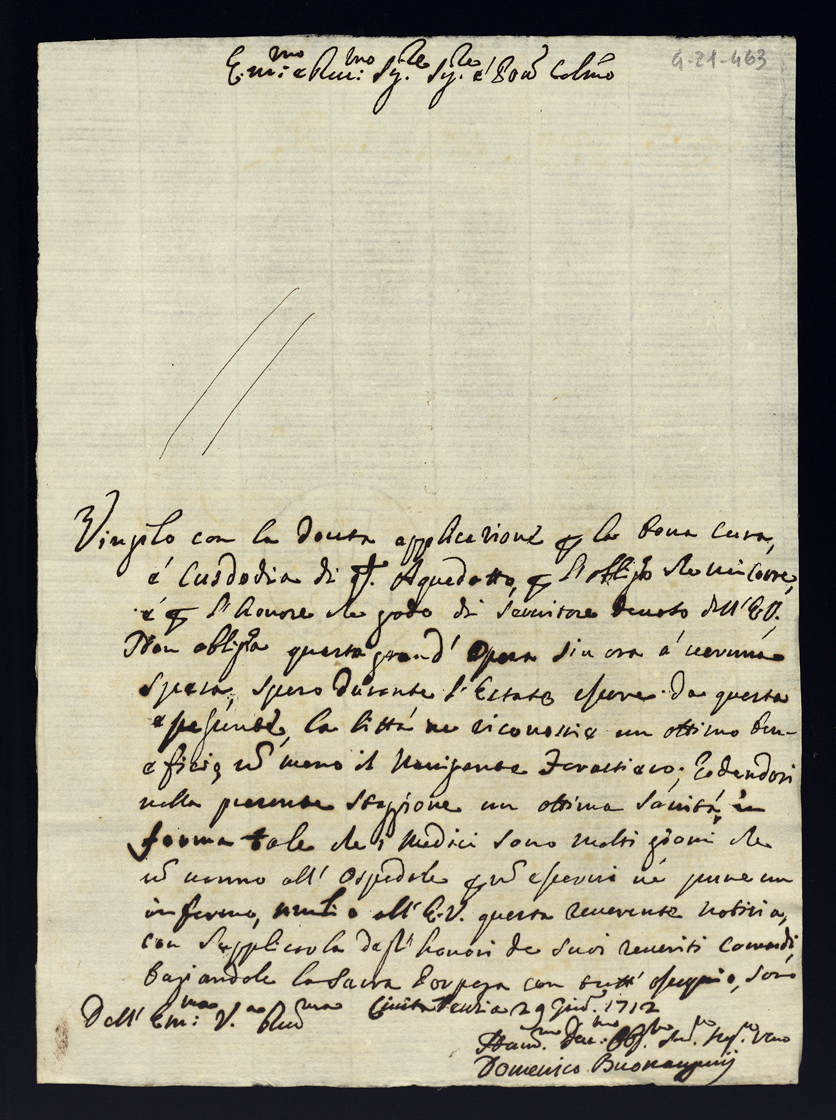 Em.mo e Rev.mo Sig.re Sig.re e Pron Colmo
G-21-463
Vigilo con la douta applicazione per la bona cura,
é Cusdodia di q.to Aquedotto, per l'obbligo che mi corre,
é per l'honore che godo di Seruitore deuoto dell'E.V.
Non obbliga questa grand' Opera sin ora á ueruna
spesa, spero durante l'Estate essere da questa
esente, la Cittá ne riconosce un ottimo ben-
eficio, non meno il Nauigante godendosi
nella presente stagione un ottima sanitá, in
forma tale che i Medici sono molti giorni che
non uanno all' Ospedale per non esserui né pure un
infermo, all'E.V. questa reuerente notizia,
con supplicarla degl'honori de suoi reueriti comandi,
baciandole la Sacra Porpora con tutt' ossequio, sono
Dell' Em.za V.a Reu.ma Ciuita Vecchia 29 Giug. 1712
Hum.mo Deu.mo Obb.mo Ser.
Domenico Buonauguri